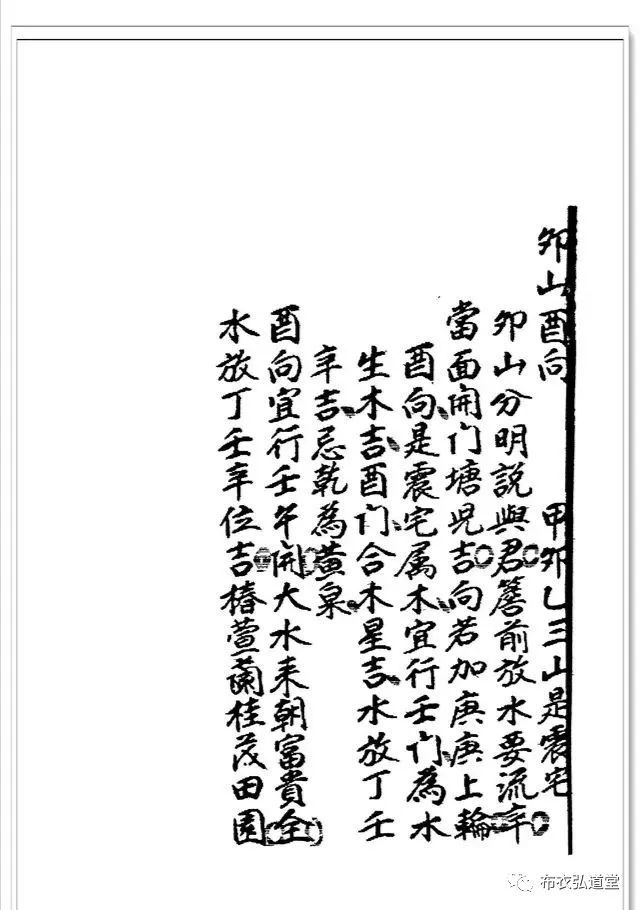 卯山酉向 甲卯乙三山是震宅
卯山分明說與君簷前放水要流辛
當面開门塘児吉向若加庚庚上輪
酉向是震宅属木宜行壬门為水
生木吉酉门合木星吉水放丁壬
辛吉忌乾為黄泉
酉向宜行壬午開大水来朝富貴全
水放丁壬辛位吉椿萱蘭桂茂田園
布衣弘道堂